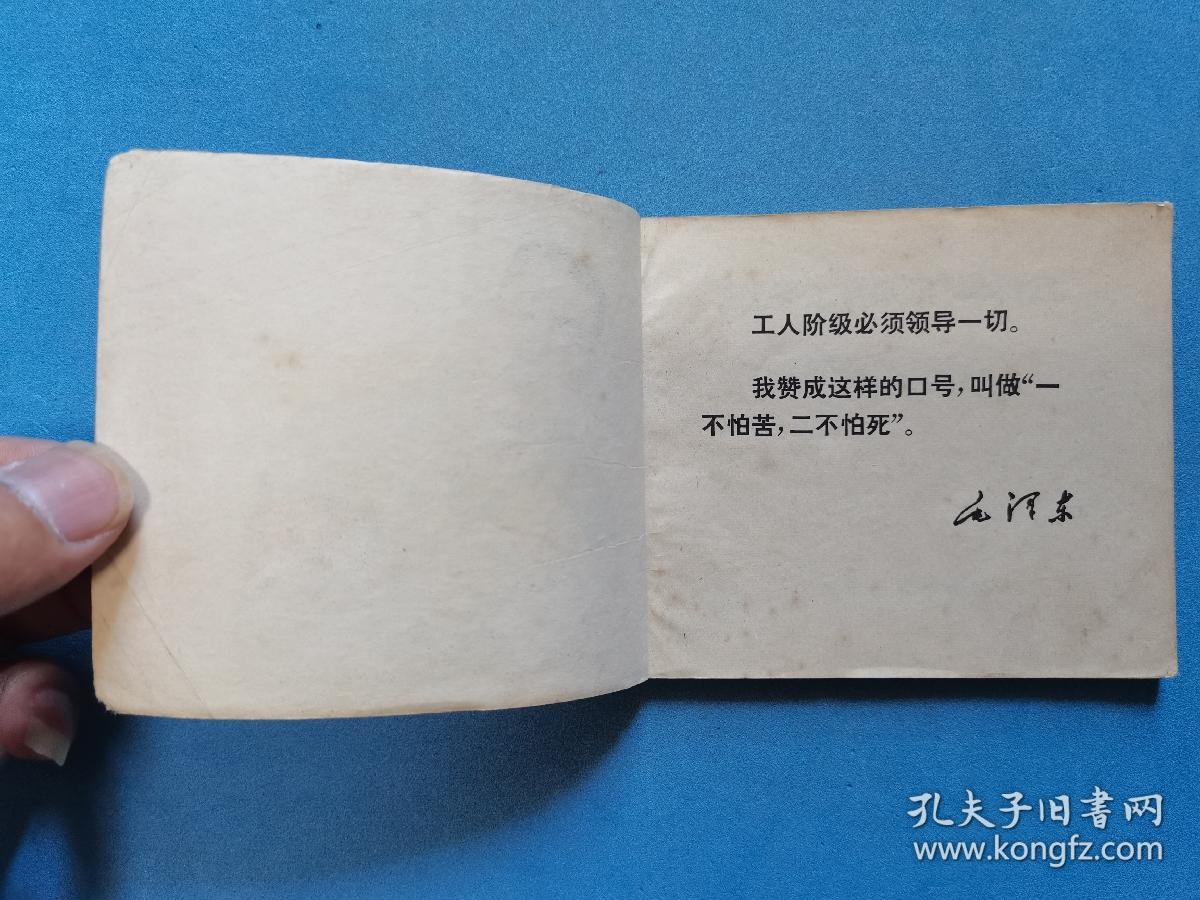 工人阶级必须领导一切。
我赞成这样的口号，叫做“一
不怕苦，二不怕死”。
毛泽东
孔夫子旧书网
www.kongfz.com